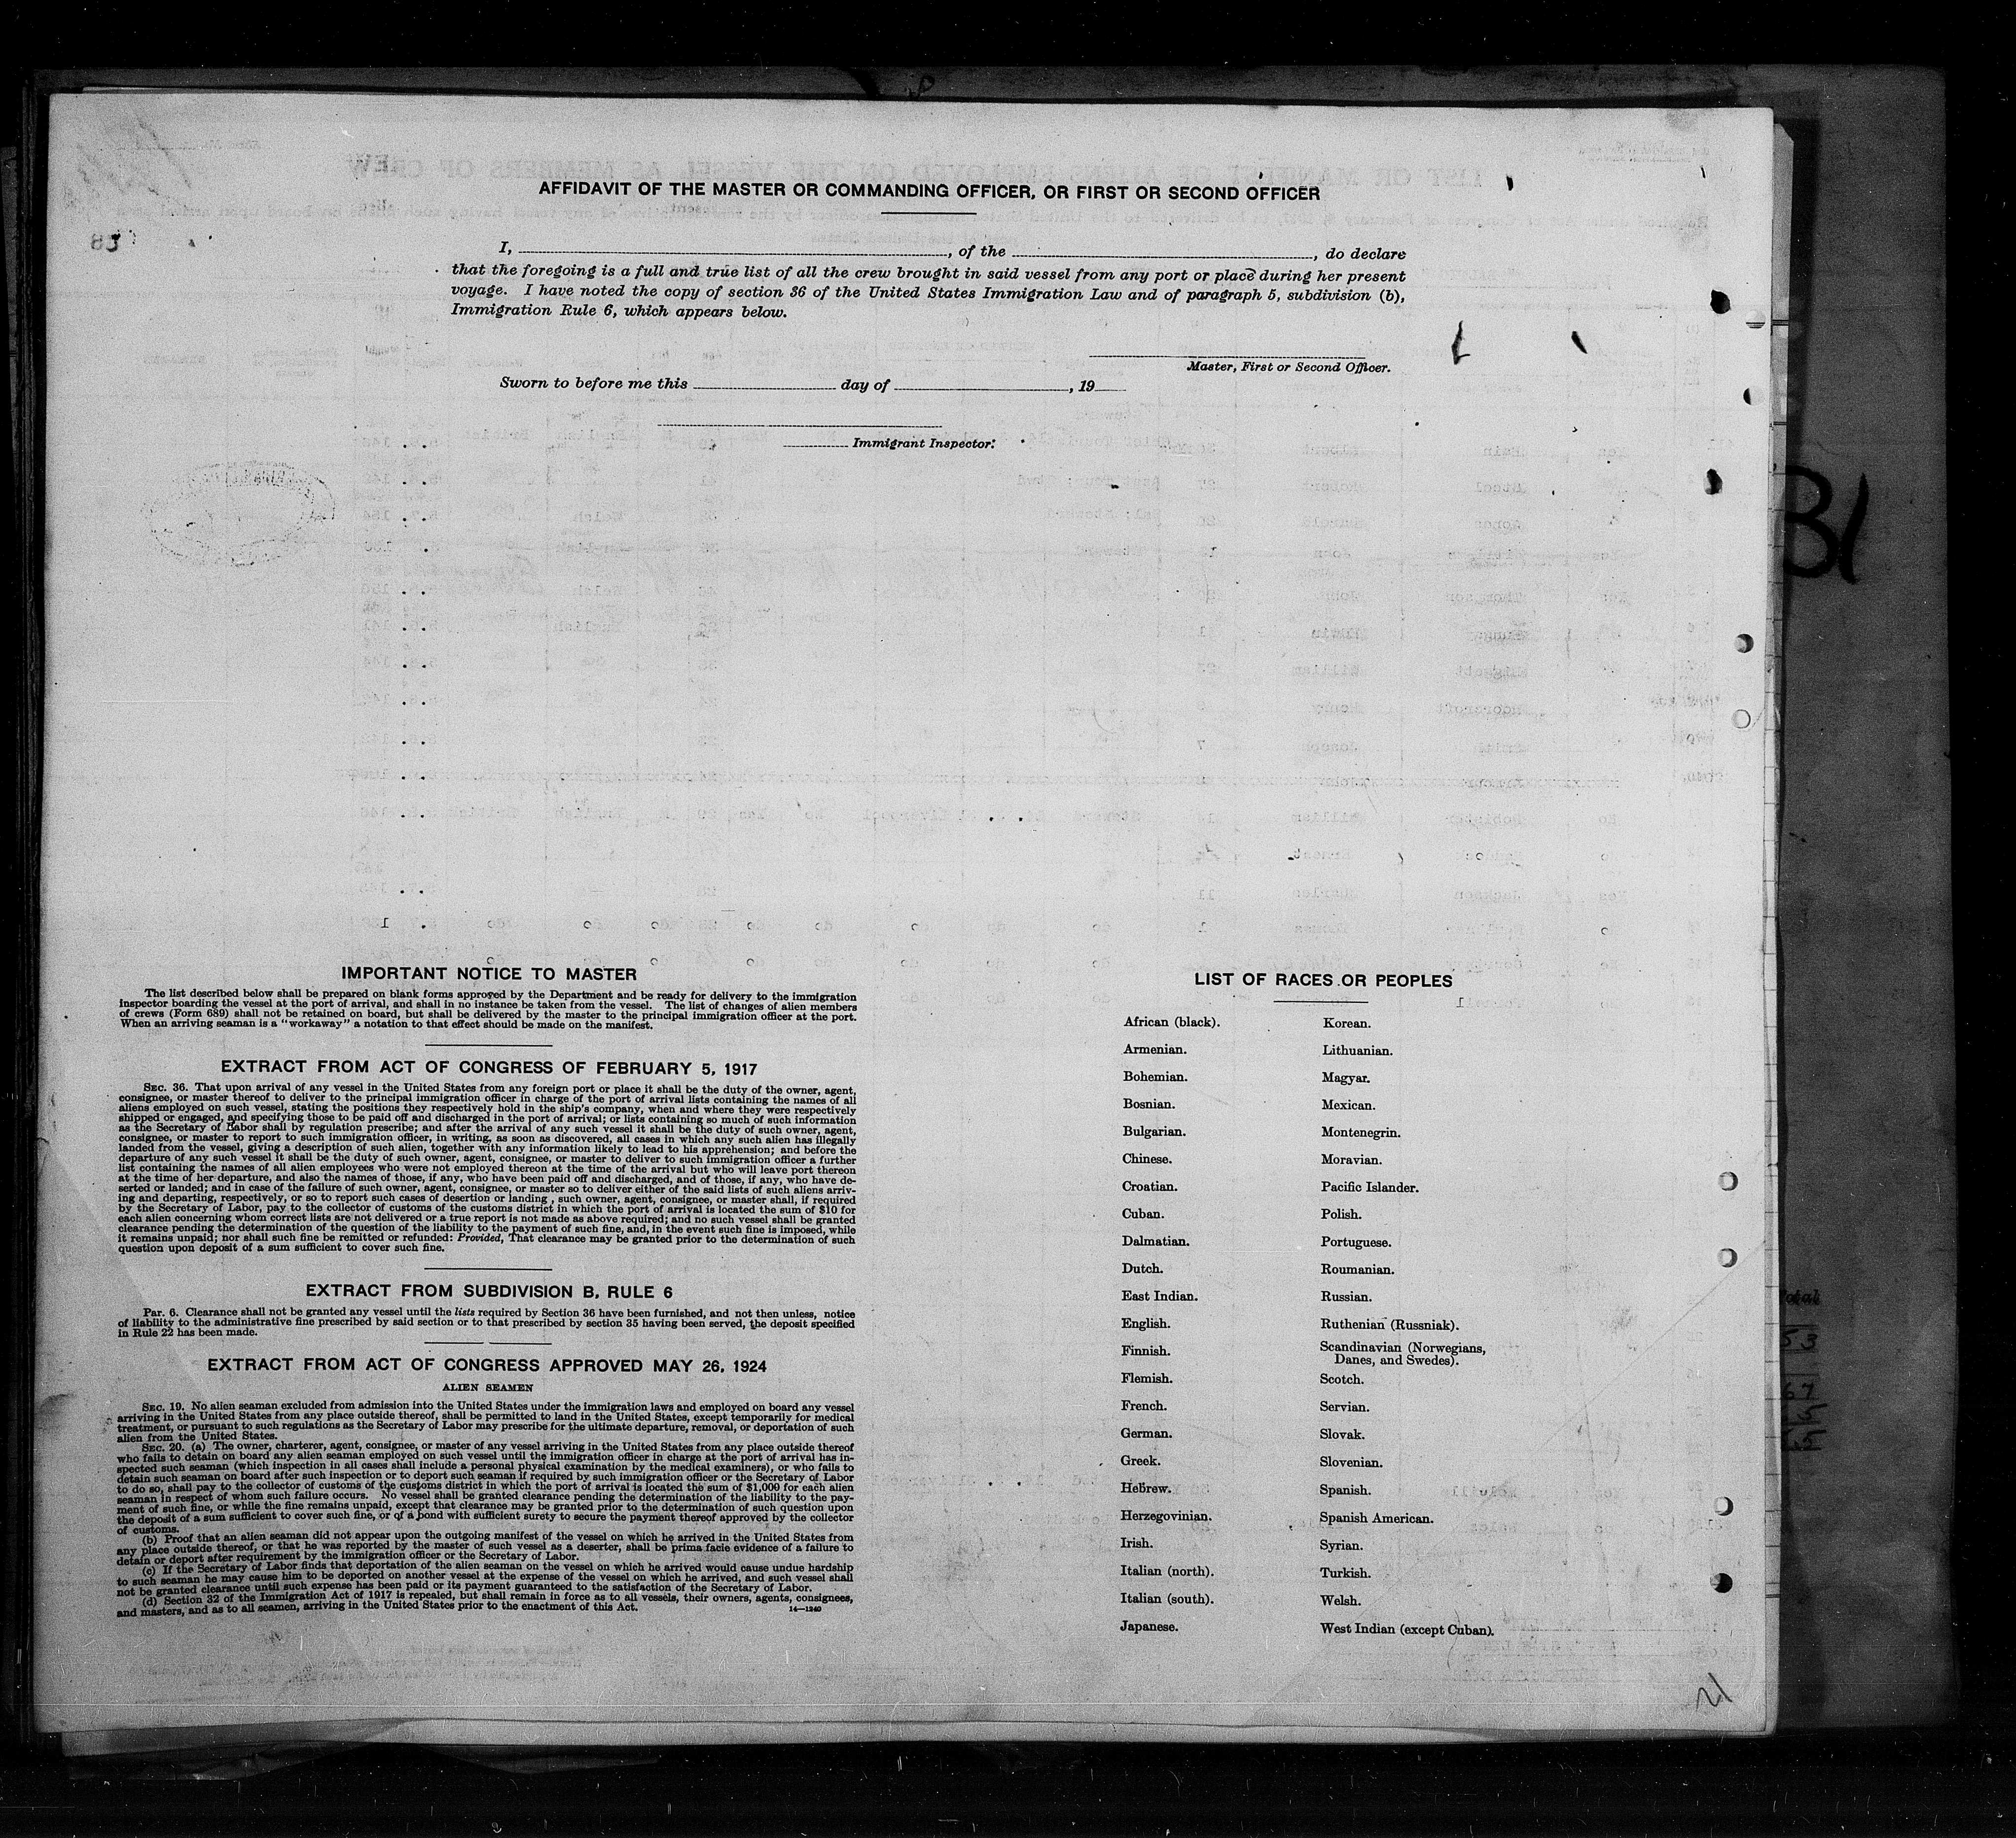 AFFIDAVIT OF THE MASTER OR COMMANDING OFFICER, OR FIRST OR SECOND OFFICER
I, , of the , do declare
that the foregoing is a full and true list of all the crew brought in said vessel from any port or place during her present
voyage. I have noted the copy of section 36 of the United States Immigration Law and of paragraph 5, subdivision (b),
Immigration Rule 6, which appears below.
Master, First or Second Officer.
Sworn to before me this day of , 19
Immigrant Inspector.
31
IMPORTANT NOTICE TO MASTER
The list described below shall be prepared on blank forms approved by the Department and be ready for delivery to the immigration
inspector boarding the vessel at the port of arrival, and shall in no instance be taken from the vessel. The list of changes of alien members
of crews (Form 689) shall not be retained on board, but shall be delivered by the master to the principal immigration officer at the port.
When an arriving seaman is a "workaway" a notation to that effect should be made on the manifest.
EXTRACT FROM ACT OF CONGRESS OF FEBRUARY 5, 1917
SEC. 36. That upon arrival of any vessel in the United States from any foreign port or place it shall be the duty of the owner, agent,
consignee, or master thereof to deliver to the principal immigration officer in charge of the port of arrival lists containing the names of all
aliens employed on such vessel, stating the positions they respectively hold in the ship's company, when and where they were respectively
shipped or engaged, and specifying those to be paid off and discharged in the port of arrival; or lists containing so much of such information
as the Secretary of Labor shall by regulation prescribe; and after the arrival of any such vessel it shall be the duty of such owner, agent,
consignee, or master to report to such immigration officer, in writing, as soon as discovered, all cases in which any such alien has illegally
landed from the vessel, giving a description of such alien, together with any information likely to lead to his apprehension; and before the
departure of any such vessel it shall be the duty of such owner, agent, consignee, or master to deliver to such immigration officer a further
list containing the names of all alien employees who were not employed thereon at the time of the arrival but who will leave port thereon
at the time of her departure, and also the names of those, if any, who have been paid off and discharged, and of those, if any, who have de-
serted or landed; and in case of the failure of such owner, agent, consignee, or master so to deliver either of the said lists of such aliens arriv-
ing and departing, respectively, or so to report such cases of desertion or landing , such owner, agent, consignee, or master shall, if required
by the Secretary of Labor, pay to the collector of customs of the customs district in which the port of arrival is located the sum of $10 for
each alien concerning whom correct lists are not delivered or a true report is not made as above required; and no such vessel shall be granted
clearance pending the determination of the question of the liability to the payment of such fine, and, in the event such fine is imposed, while
it remains unpaid; nor shall such fine be remitted or refunded: Provided, That clearance may be granted prior to the determination of such
question upon deposit of a sum sufficient to cover such fine.
EXTRACT FROM SUBDIVISION B, RULE 6
PAR. 6. Clearance shall not be granted any vessel until the lists required by Section 36 have been furnished, and not then unless, notice
of liability to the administrative fine prescribed by said section or to that prescribed by section 35 having been served, the deposit specified
in Rule 22 has been made.
EXTRACT FROM ACT OF CONGRESS APPROVED MAY 26, 1924
ALIEN SEAMEN
SEC. 19. No alien seaman excluded from admission into the United States under the immigration laws and employed on board any vessel
arriving in the United States from any place outside thereof, shall be permitted to land in the United States, except temporarily for medical
treatment, or pursuant to such regulations as the Secretary of Labor may prescribe for the ultimate departure, removal, or deportation of such
alien from the United States.
SEC. 20. (a) The owner, charterer, agent, consignee, or master of any vessel arriving in the United States from any place outside thereof
who fails to detain on board any alien seaman employed on such vessel until the immigration officer in charge at the port of arrival has in-
spected such seaman (which inspection in all cases shall include a personal physical examination by the medical examiners), or who fails to
detain such seaman on board after such inspection or to deport such seaman if required by such immigration officer or the Secretary of Labor
to do so, shall pay to the collector of customs of the customs district in which the port of arrival is located the sum of $1,000 for each alien
seaman in respect of whom such failure occurs. No vessel shall be granted clearance pending the determination of the liability to the pay-
ment of such fine, or while the fine remains unpaid, except that clearance may be granted prior to the determination of such question upon
the deposit of a sum sufficient to cover such fine, or of a bond with sufficient surety to secure the payment thereof approved by the collector
of customs.
(b) Proof that an alien seaman did not appear upon the outgoing manifest of the vessel on which he arrived in the United States from
any place outside thereof, or that he was reported by the master of such vessel as a deserter, shall be prima facie evidence of a failure to
detain or deport after requirement by the immigration officer or the Secretary of Labor.
(c) If the Secretary of Labor finds that deportation of the alien seaman on the vessel on which he arrived would cause undue hardship
to such seaman he may cause him to be deported on another vessel at the expense of the vessel on which he arrived, and such vessel shall
not be granted clearance until such expense has been paid or its payment guaranteed to the satisfaction of the Secretary of Labor.
(d) Section 32 of the Immigration Act of 1917 is repealed, but shall remain in force as to all vessels, their owners, agents, consignees,
and masters, and as to all seamen, arriving in the United States prior to the enactment of this Act.
14—1240
LIST OF RACES OR PEOPLES
African (black).
Armenian.
Bohemian.
Bosnian.
Bulgarian.
Chinese.
Croatian.
Cuban.
Dalmatian.
Dutch.
East Indian.
English.
Finnish.
Flemish.
French.
German.
Greek.
Hebrew.
Herzegovinian.
Irish.
Italian (north).
Italian (south).
Japanese.
Korean.
Lithuanian.
Magyar.
Mexican.
Montenegrin.
Moravian.
Pacific Islander.
Polish.
Portuguese.
Roumanian.
Russian.
Ruthenian (Russniak).
Scandinavian (Norwegians,
Danes, and Swedes).
Scotch.
Servian.
Slovak.
Slovenian.
Spanish.
Spanish American.
Syrian.
Turkish.
Welsh.
West Indian (except Cuban).
Total
53
67
21